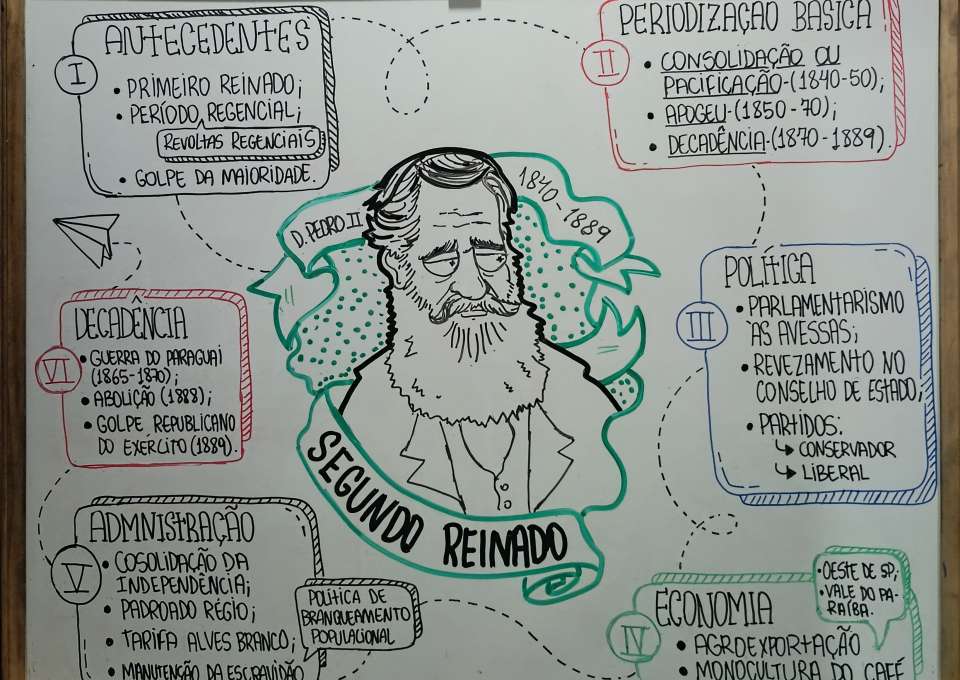 I
ANTECEDENTES
• PRIMEIRO REINADO;
• PERÍODO REGENCIAL;
REVOLTAS REGENCIAIS
• GOLPE DA MAIORIDADE.
II
PERIODIZAÇÃO BÁSICA
• CONSOLIDAÇÃO OU
PACIFICAÇÃO-(1840-50);
• APOGEU-(1850-70);
• DECADÊNCIA-(1870-1889).
D. PEDRO II
1840-1889
SEGUNDO REINADO
III
POLÍTICA
• PARLAMENTARISMO
ÀS AVESSAS;
• REVEZAMENTO NO
CONSELHO DE ESTADO;
• PARTIDOS:
↳ CONSERVADOR
↳ LIBERAL
IV
ECONOMIA
• AGROEXPORTAÇÃO
• MONOCULTURA DO CAFÉ
• OESTE DE SP;
• VALE DO PA-
RAÍBA.
V
ADMNISTRAÇÃO
• COSOLIDAÇÃO DA
INDEPENDÊNCIA;
• PADROADO RÉGIO;
• TARIFA ALVES BRANCO;
• MANUTENÇÃO DA ESCRAVIDÃO
POLÍTICA DE
BRANQUEAMENTO
POPULACIONAL
VI
DECADÊNCIA
• GUERRA DO PARAGUAI
(1865-1870);
• ABOLIÇÃO (1888);
• GOLPE REPUBLICANO
DO EXÉRCITO (1889).